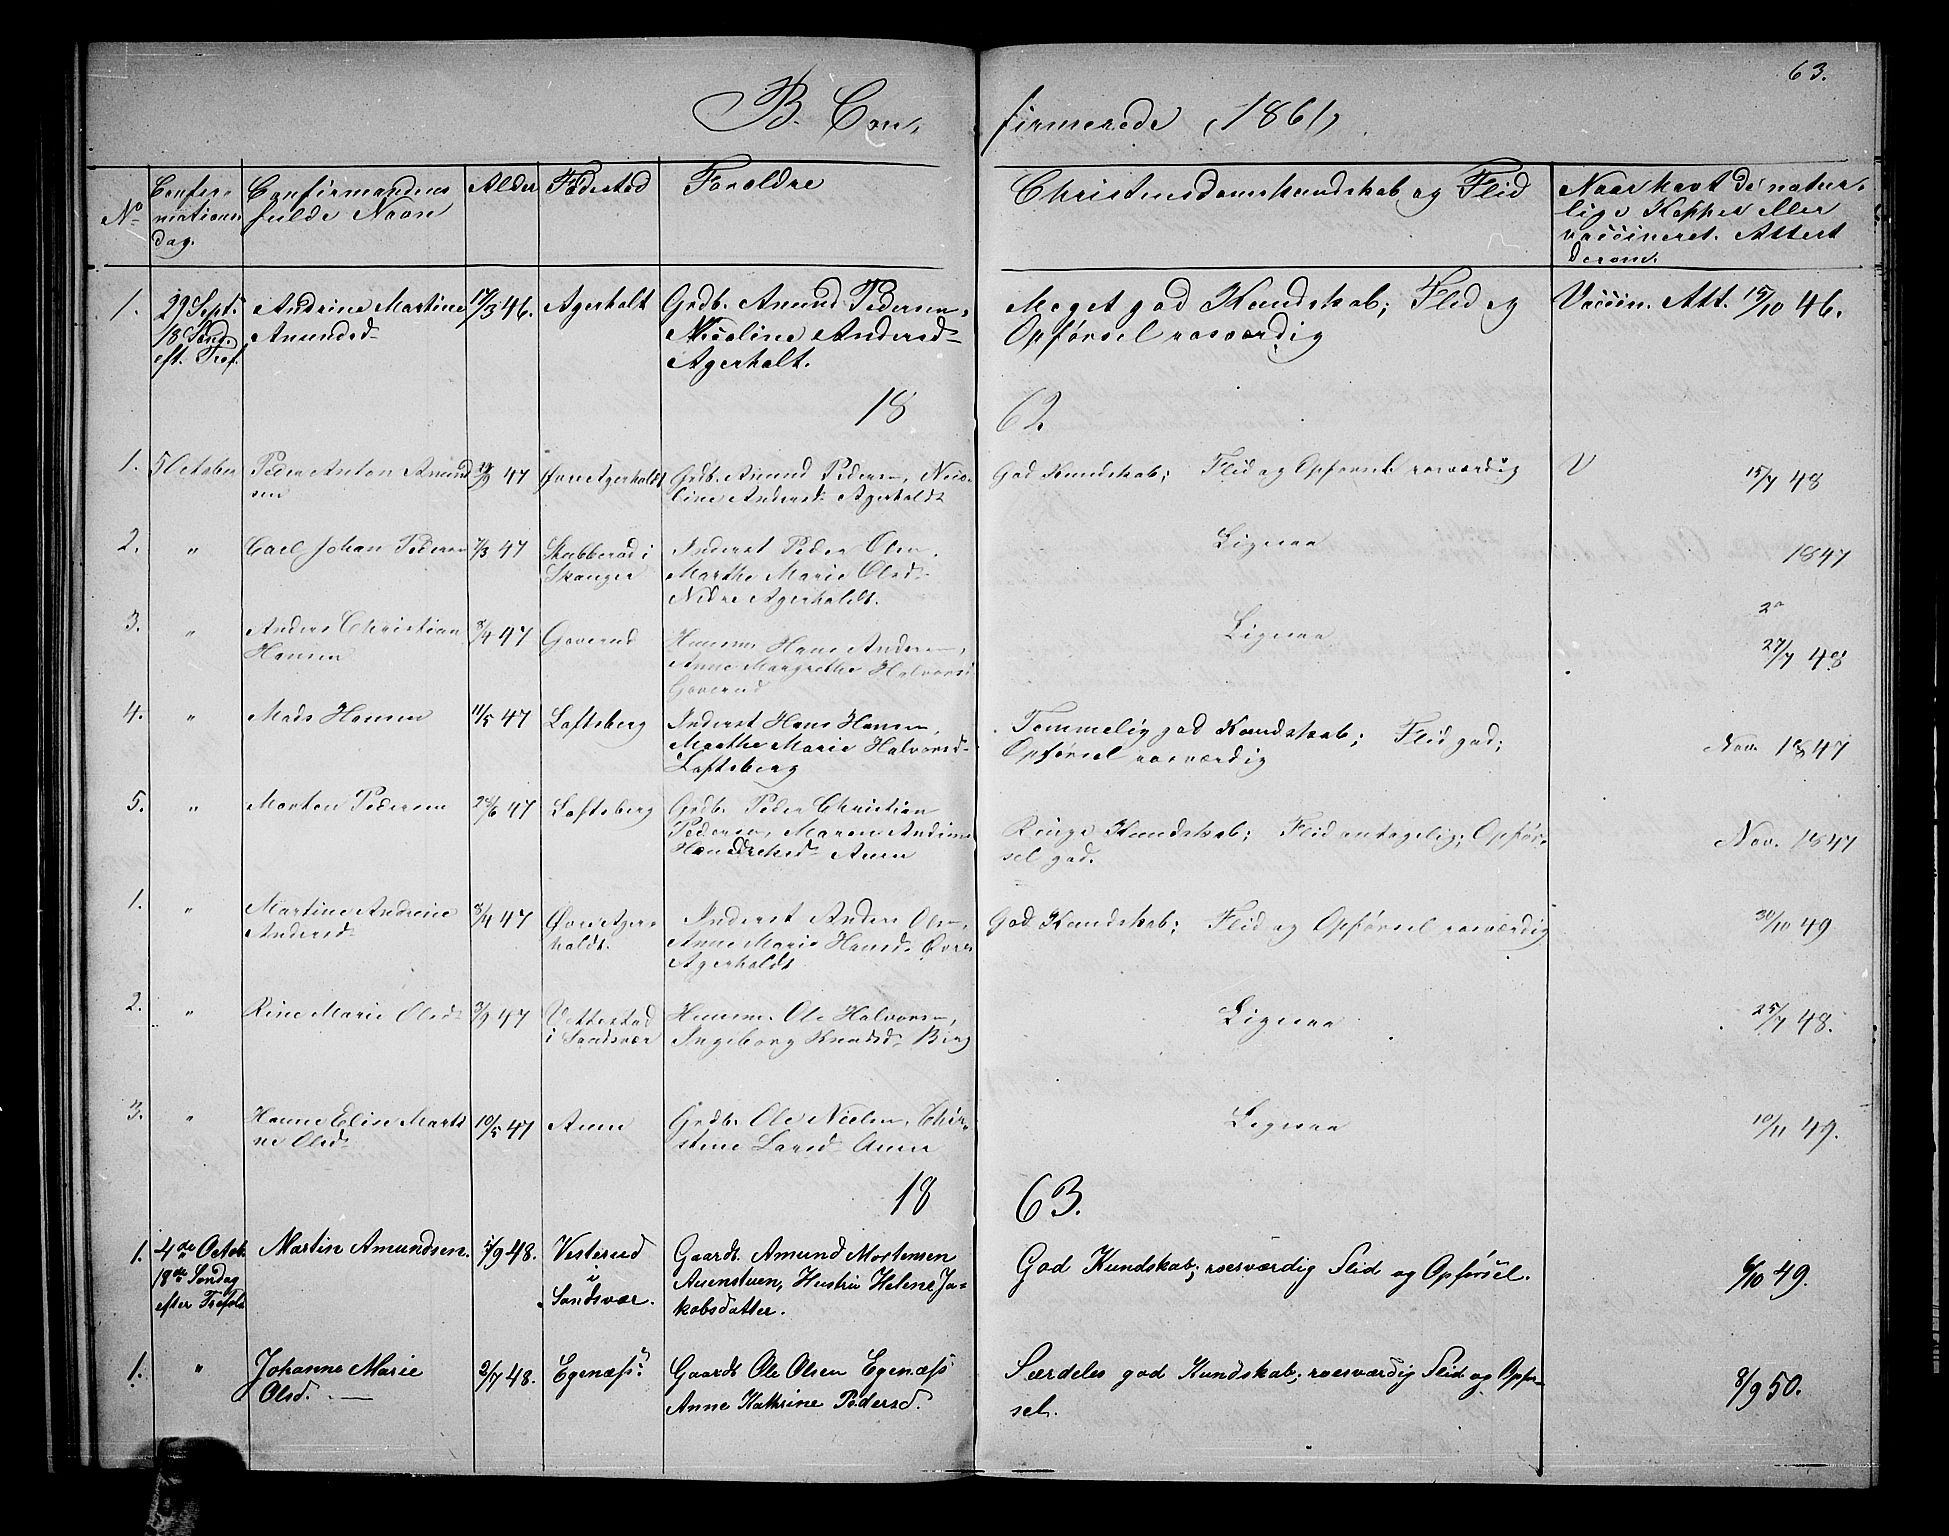 63.
B. Con, firmerede 1861,
No Confir= mations dag. Confirmandens fulde Navn Alder Fødested Forældre Christendomskundskab og Flid Naar havt de natur= lige Kopper eller vaccineret. Attest derom.
1. 29 Sept. 18 Sønd. eft. Tref. Andrine Martine Amundsd 17/3 46. Agerholt Grdb. Amund Pedersen, Nicoline Andersd Agerholt. Meget god Kundskab; Flid og Opførsel rosværdig Vaccin. Att. 15/10 46.
18 62.
1. 5 October Peder Anton Amund sen 47 Øvre Agerholdt Grdb. Amund Pedersen, Nico= line Andersd Agerholdt God Kundskab; Flid og Opførsel rosværdig V 15/7 48
2. " Carl Johan Pedersen 7/3 47 Skabberød i Skouger Inderst Peder Olsen, Marthe Marie Olsd Nedre Agerholdt. Ligesaa 1847
3. " Anders Christian Hansen 47 Goverud Huusm. Hans Andersen, Anne Margrethe Halvorsd Goverud Ligesaa 27/7 48
4. " Mads Hansen 11/5 47 Loftsberg Inderst Hans Hansen, Marthe Marie Halvorsd Loftsberg Temmelig god Kundskab; Flid god; Opførsel rosværdig Nov. 1847
5. " Morten Pedersen 28/6 47 Loftsberg Grdb. Peder Christian Pedersen, Maren Andrine Hendriksd Auen Ringe Kundskab; Flid antagelig; Opfør= sel god. Nov. 1847
1. " Martine Andrine Andersd 47 Øvre Ager= holdt. Inderst Anders Olsen, Anne Marie Hansd Øvre Agerholdt God Kundskab; Flid og Opførsel rosværdig 30/10 49
2. " Rine Marie Olsd 3/9 47 Vettestad i Sandsvær Huusm. Ole Halvorsen, Ingeborg Knudsd Berg Ligesaa 25/7 48.
3. " Hanne Elise Marti ne Olsd 10/5 47 Auen Grdb. Ole Nielsen, Chir= stine Larsd Auen Ligesaa 10/11 49.
18 63.
1. 4de Octob. 18de Søndag efter Trefold Martin Amundsen. 5/9 48. Vesterud i Sandsvær. Gaardb. Amund Mortensen Auenstuen, Hustru Helene Ja= kobsdatter. God Kundskab; roesværdig Flid og Opførsel. 6/10 49.
1. " Johanne Marie Olsd. 2/7 48. Egenæss Gaardb Ole Olsen Egenæss Anne Kathrine Pedersd. Særdeles god Kundskab; roesværdig Flid og Opfør= sel. 8/9 50.